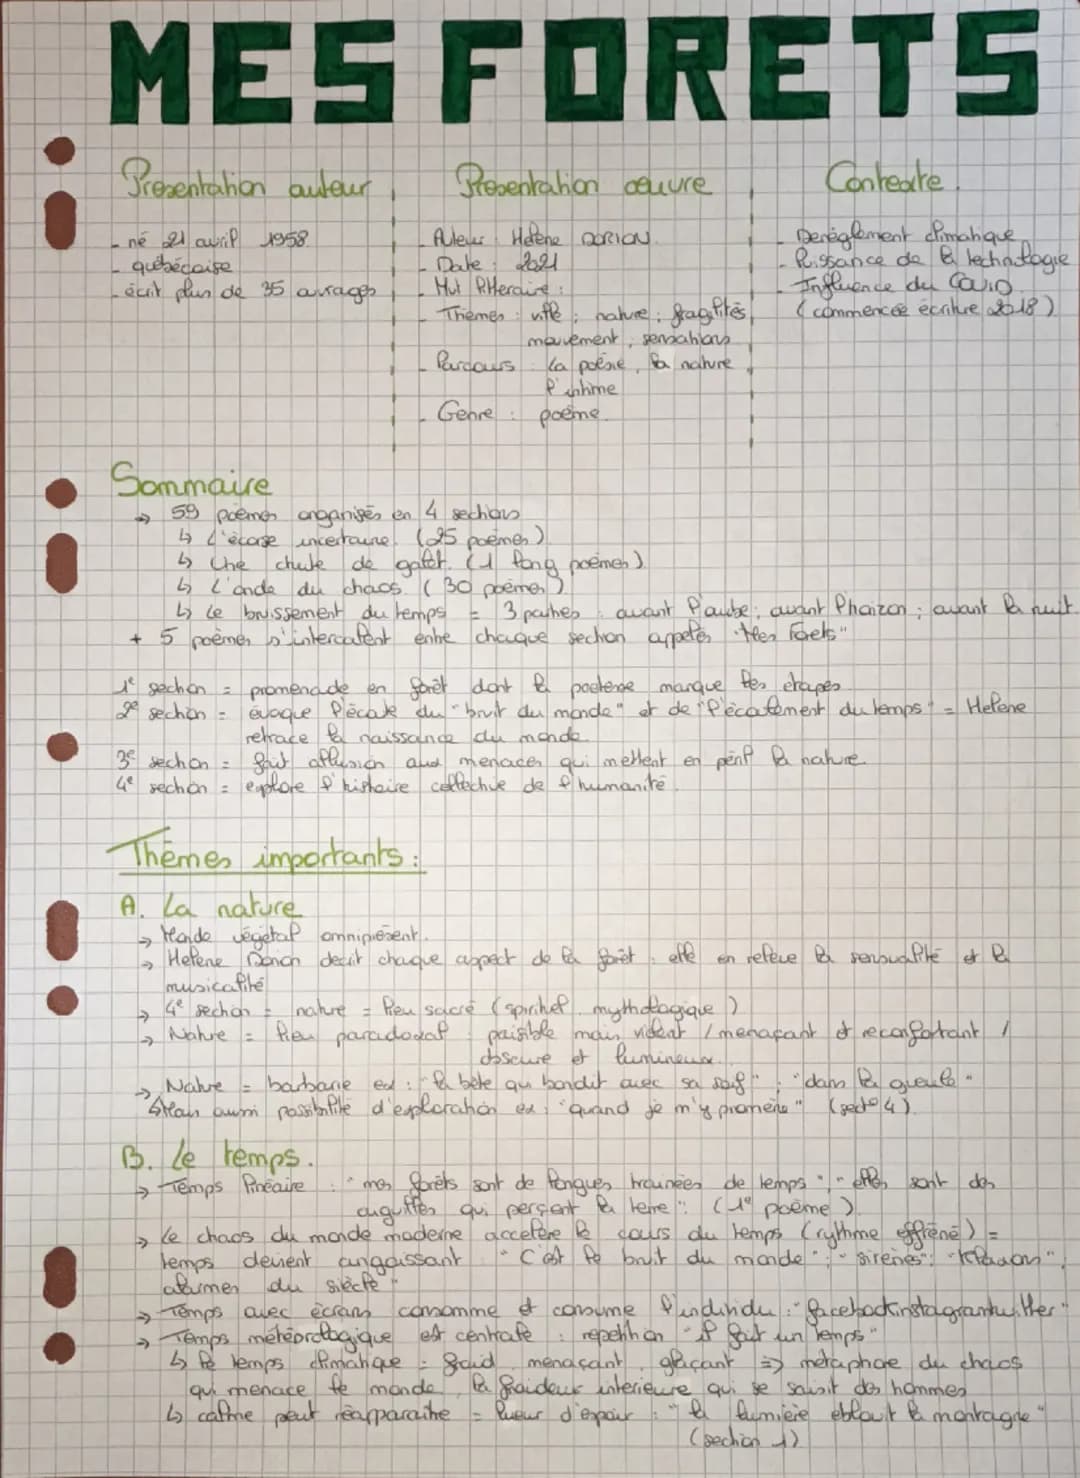 MES FORETS
Presentation auteur
- né 21 avril 1958
- québécoise
- écrit plus de 35 ouvrages
Presentation œuvre
- Auteur : Hélène DORION
- Date : 2021
- Mvt litteraire :
- Thèmes : ville ; nature ; fragilités,
mouvement, sensations
- Parcours : La poésie, la nature,
l'intime
- Genre : poème
Contexte
- Dereglement climatique
- Puissance de la technologie
- Influence du COVID
(commencée écriture 2018)
Sommaire
→ 59 poèmes organisés en 4 sections
↳ L'écorce incertaine. (25 poèmes)
↳ Une chute de galet. (1 long poèmes)
↳ L'onde du chaos. (30 poèmes)
↳ Le bruissement du temps = 3 parties : avant l'aube ; avant l'horizon ; avant la nuit
+ 5 poèmes s'intercalent entre chaque section appelés "Mes Forets"
1e section = promenade en forêt dont la poetesse marque les étapes
2e section = évoque l'écart du "bruit du monde" et de "l'écoulement du temps" = Helene
retrace la naissance du monde
3e section = fait allusion aux menaces qui mettent en péril la nature
4e section = explore l'histoire collective de l'humanité.
Thèmes importants :
A. La nature
→ Monde végétal omniprésent.
→ Helene Dorion decrit chaque aspect de la forêt : elle en relève la sensualité et la
musicalité
→ 4e section = nature = lieu sacré (spirituel, mythologique)
→ Nature = lieu paradoxal : paisible mais violent / menaçant et reconfortant /
obscure et lumineux.
→ Nature = barbarie ex : "la bête qui bondit avec sa soif" ; "dans la gueule"
↳ Mais aussi possibilité d'exploration ex : "quand je m'y promène" (secto 4)
B. Le temps.
→ Temps linéaire : "mes forêts sont de longues trainées de temps", "elles sont des
aiguilles qui percent la terre" : (1e poème)
→ Le chaos du monde moderne accelère le cours du temps (rythme effréné) =
temps devient angoissant : "C'est le bruit du monde" ; "sirènes" ; "Klaxons",
abimes du siècle"
→ Temps avec écrans consomme et consume l'individu : "facebookinstagramtwitter"
→ Temps météorologique est centrale : repetition "il fait un temps"
↳ le temps climatique = froid, menaçant, glaçant ⇒ métaphore du chaos
qui menace le monde, la froideur interieure qui se saisit des hommes
↳ calme peut réapparaitre = lueur d'espoir : "la lumière éblouit la montagne"
(section 1)